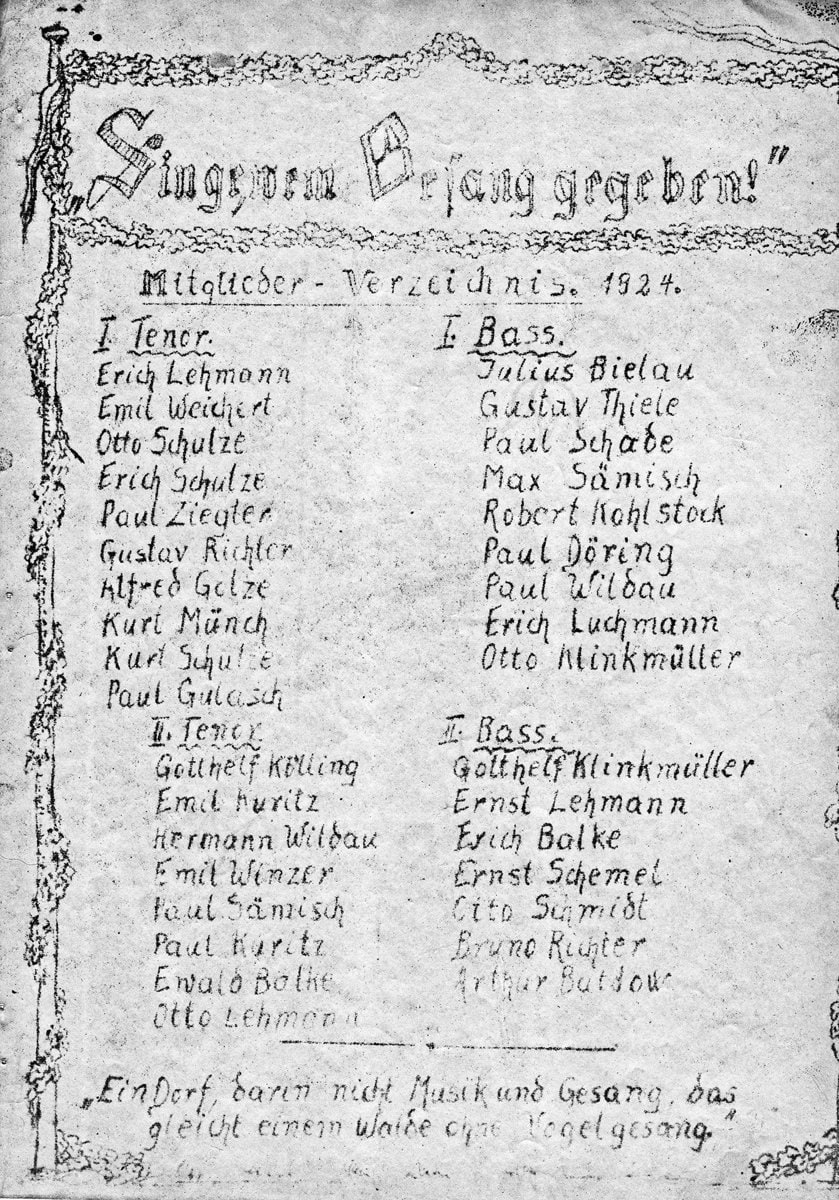 „Singe, wem Gesang gegeben!"
Mitglieder - Verzeichnis. 1924.
I Tenor.
Erich Lehmann
Emil Weichert
Otto Schulze
Erich Schulze
Paul Ziegler
Gustav Richter
Alfred Golze
Kurt Münch
Kurt Schulze
Paul Gulasch
II. Tenor
Gotthelf Kölling
Emil Kuritz
Hermann Wildau
Emil Winzer
Paul Sämisch
Paul Kuritz
Ewald Balke
Otto Lehmann
I. Bass.
Julius Bielau
Gustav Thiele
Paul Schade
Max Sämisch
Robert Kohlstock
Paul Döring
Paul Wildau
Erich Luchmann
Otto Klinkmüller
II. Bass.
Gotthelf Klinkmüller
Ernst Lehmann
Erich Balke
Ernst Schemel
Otto Schmidt
Bruno Richter
Arthur
„Ein Dorf, darin nicht Musik und Gesang, das
gleicht einem Walde ohne Vogelgesang."